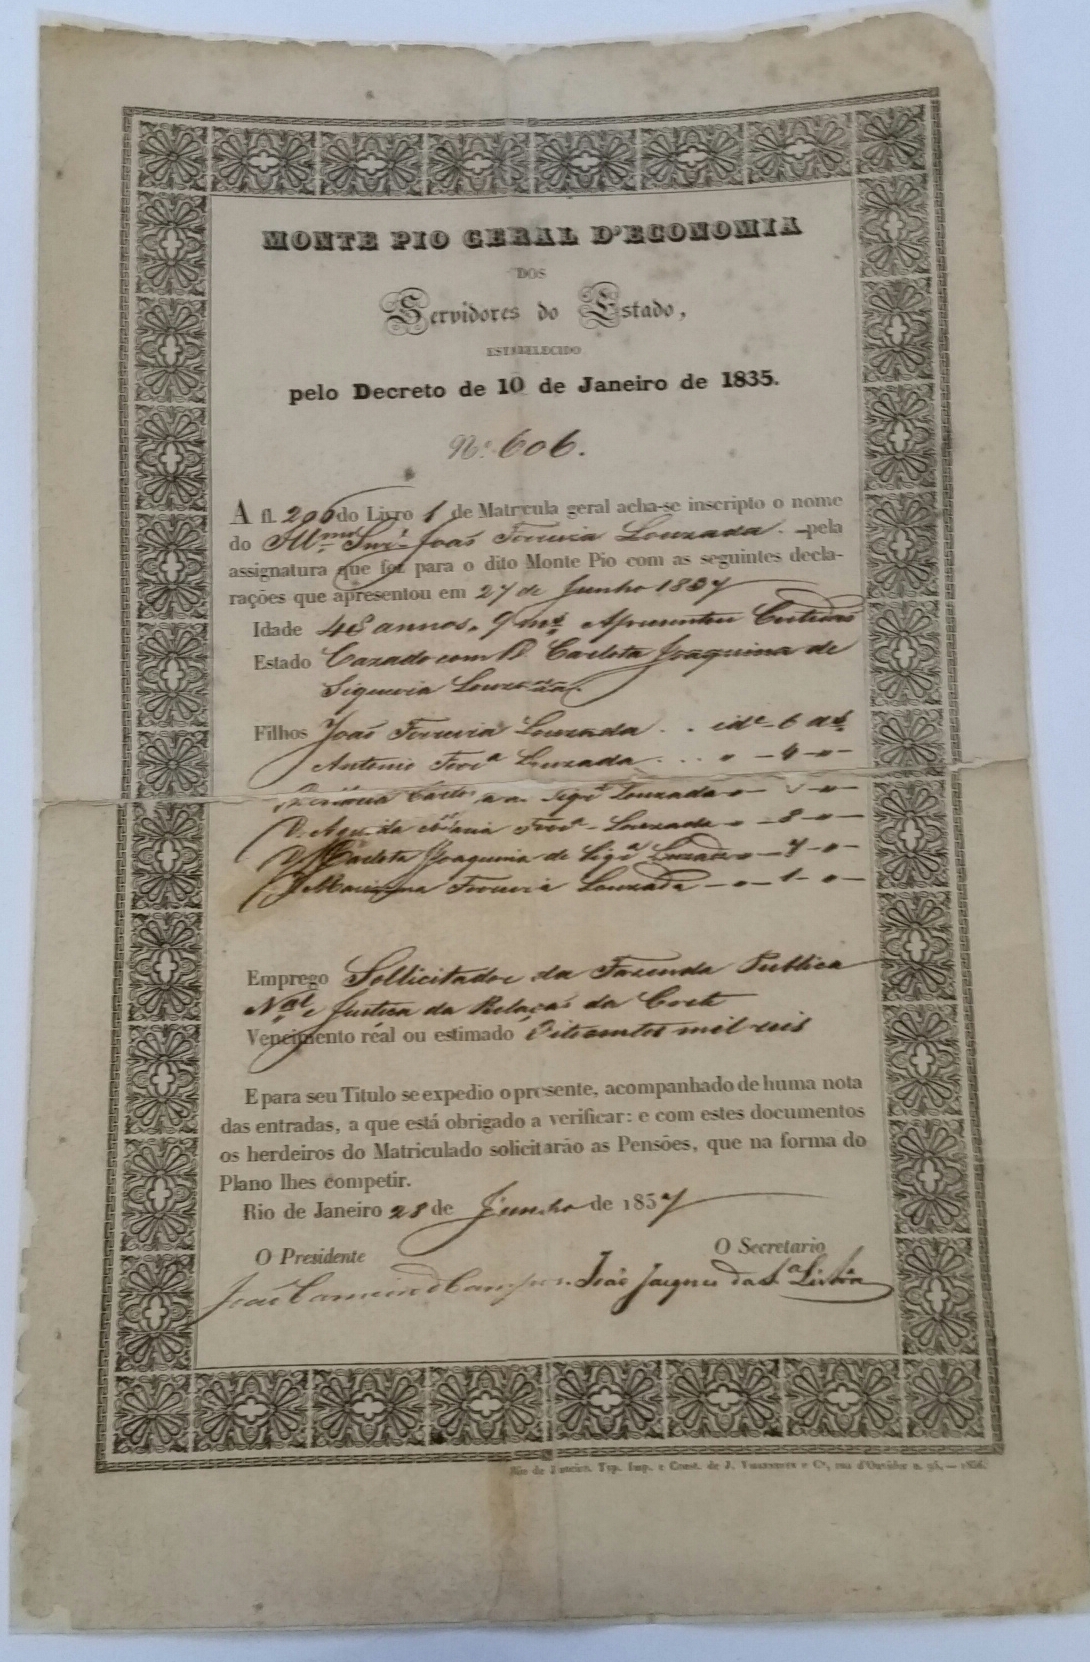 MONTE PIO GERAL D'ECONOMIA
DOS
Servidores do Estado,
ESTABELECIDO
pelo Decreto de 10 de Janeiro de 1835.
Nº 606.
A fl. 206 do Livro 1 de Matricula geral acha-se inscripto o nome
do Illmo Snr. João Ferreira Louzada. pela
assignatura que fez para o dito Monte Pio com as seguintes decla-
rações que apresentou em 27 de Junho 1837
Idade 48 annos. 9 ms. Apresentou Certidão
Estado Cazado com D. Carlota Joaquina de
Siqueira Louzada.
Filhos João Ferreira Louzada . . ide 6 as.
Antonio Ferra Louzada . . . " - 4 - " -
Louzada
D. Agueda Maria Ferra Louzada " - 8 - " -
D. Carlota Joaquina de Siqa Louzada " - 7 - " -
D. Marianna Ferreira Louzada - " - 1 - " -
Emprego Sollicitador da Fazenda Publica
Nal e Justiça da Relação da Corte
Vencimento real ou estimado Oitocentos mil reis
E para seu Titulo se expedio o presente, acompanhado de huma nota
das entradas, a que está obrigado a verificar: e com estes documentos
os herdeiros do Matriculado solicitarão as Pensões, que na forma do
Plano lhes competir.
Rio de Janeiro 28 de Junho de 1837
O Presidente
O Secretario
João Carneiro de Campos. João Jacques da Sa. Lisboa
Rio de Janeiro. Typ. Imp. e Const. de J. Villeneuve e Ca, rua d'Ouvidor n. 95, — 1836.